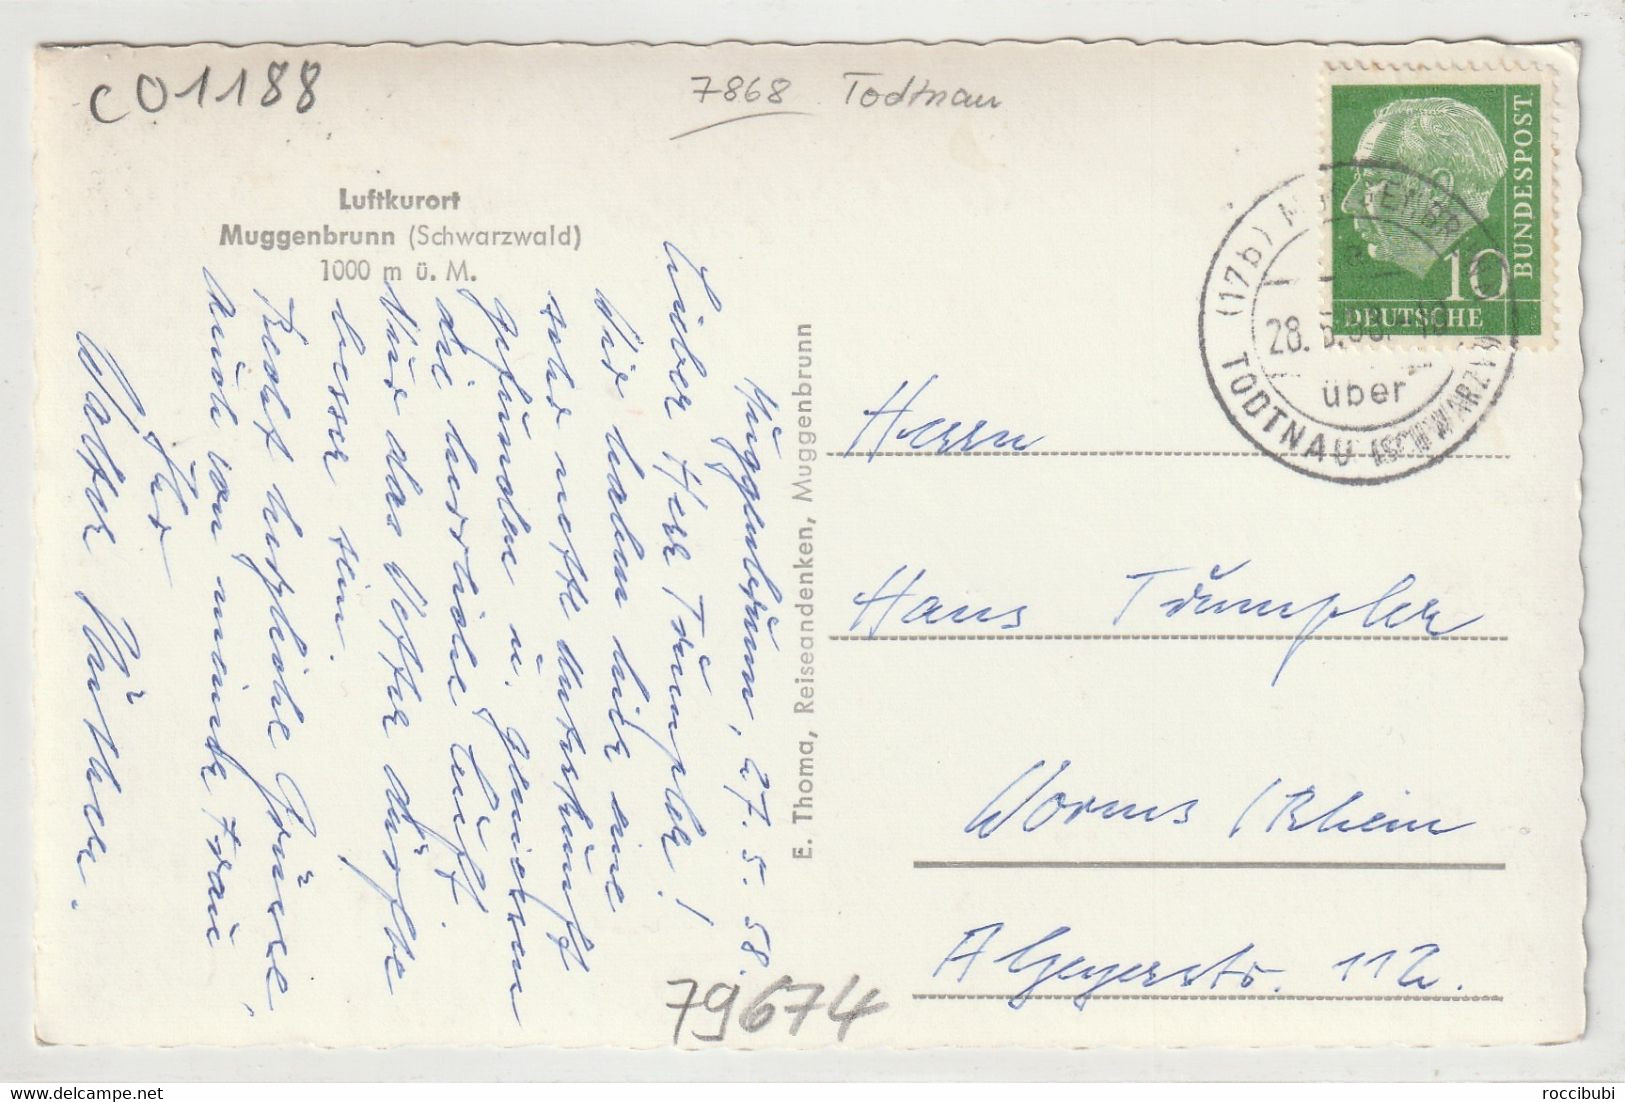 c01188
7868 Todtnau
Luftkurort
Muggenbrunn (Schwarzwald)
1000 m ü. M.
Muggenbrunn, 27. 5. 58.
Lieber Herr Trümpler!
Wir haben hier eine
sehr nette Unterkunft
gefunden u. geniessen
die herrliche Luft.
Nur das Wetter dürfte
besser sein.
Recht herzliche Grüsse,
auch von meiner Frau
Ihr
Walter
E. Thoma, Reiseandenken, Muggenbrunn
DEUTSCHE
BUNDESPOST
10
(17b)
28.
über
TODTNAU (SCHWARZW
Herrn
Hans Trümpler
Worms /Rhein
Algeyerstr. 112.
79674
roccibubi